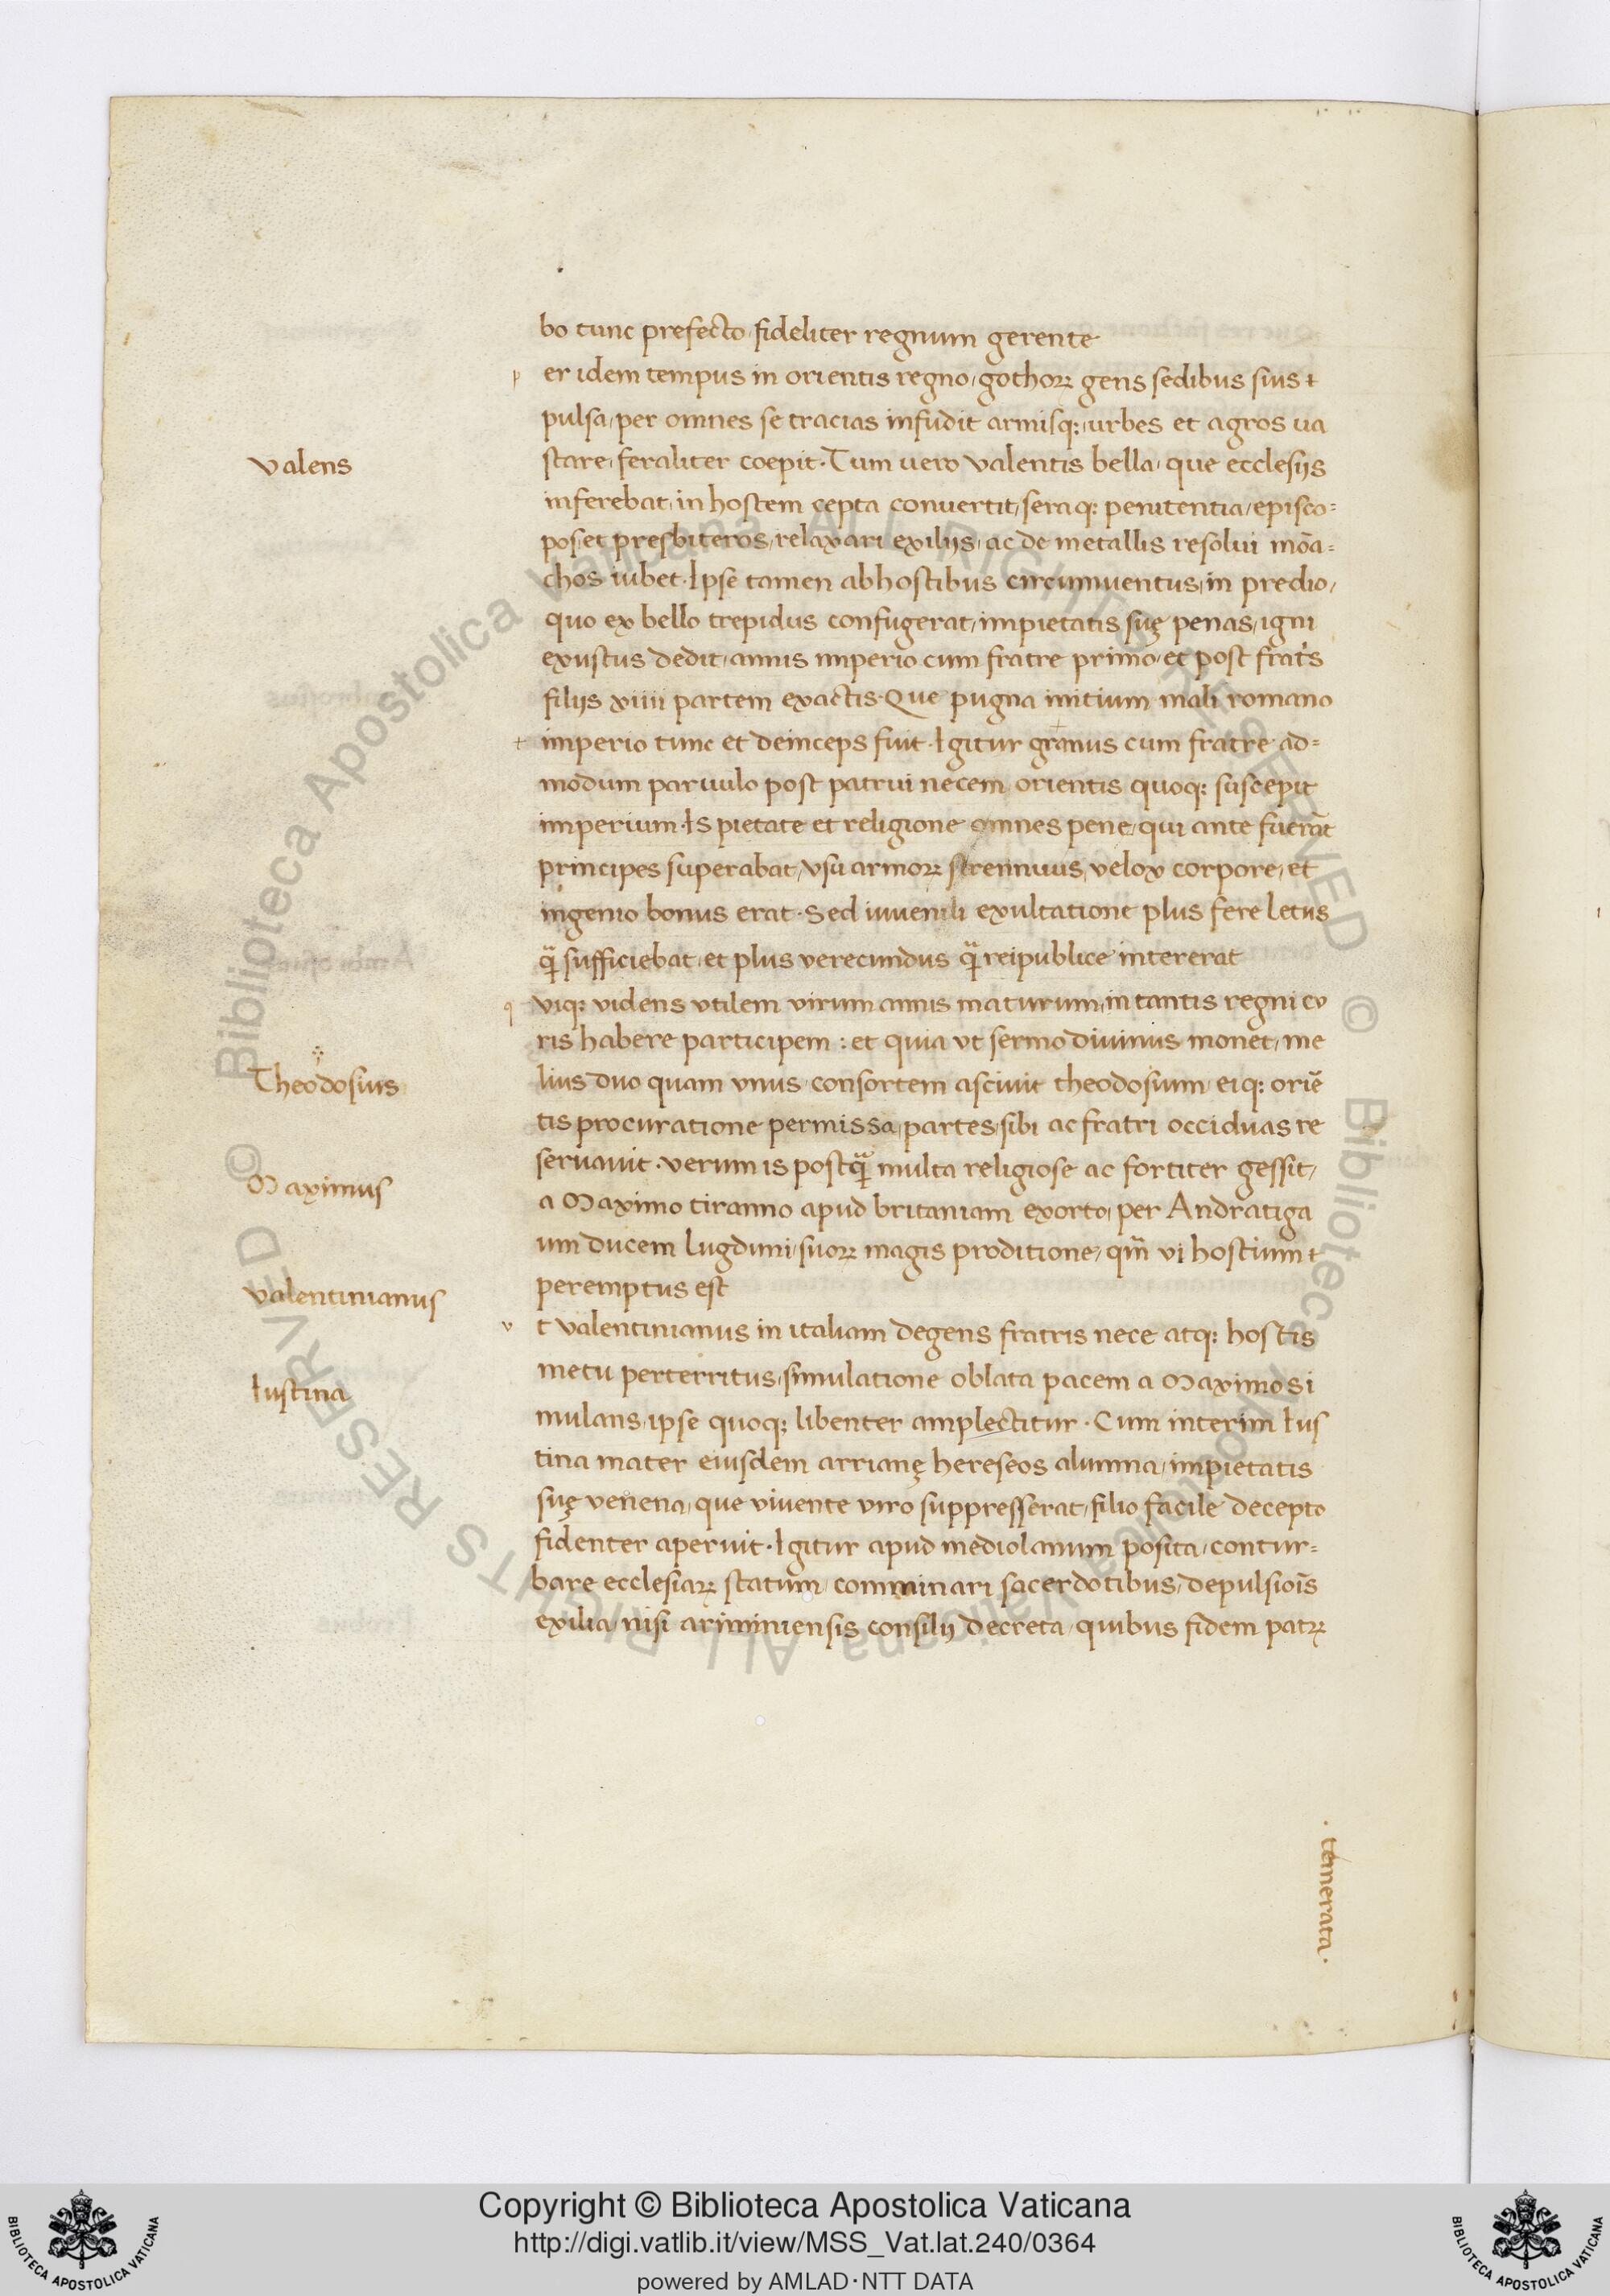 bo tunc prefecto fideliter regnum gerente
p er idem tempus in orientis regno, gothoꝝ gens sedibus suis t
pulsa, per omnes se tracias infudit armisq; urbes et agros ua
valens
stare, feraliter coepit. Tum uero valentis bella, que ecclesijs
inferebat, in hostem cepta convertit, seraq; penitentia, episco=
pos et presbiteros, relaxari exilijs, ac de metallis resolui mōa=
chos iubet. Ipse tamen ab hostibus circumventus, in predio,
quo ex bello trepidus confugerat, impietatis suę penas, igni
exustus dedit, annis imperio cum fratre primo, et post frat̄s
filijs xiiii partem exactis. Que pugna initium mali romano
+ imperio tunc et deinceps fuit. Igitur granus cum fratre ad=
modum parvulo post patrui necem orientis quoq; suscepit
imperium. Is pietate et religione omnes pene, qui ante fuerāt
principes superabat, vsu armoꝝ strennuus, velox corpore, et
ingenio bonus erat. Sed iuvenili exultatione plus fere letus
q̄ sufficiebat, et plus verecundus q̄ reipublice intererat
q viq; videns vtilem virum annis maturum, in tantis regni cv
ris habere participem : et quia vt sermo divinus monet, me
Theodosius
lius duo quam vnus, consortem ascivit theodosium, eiq; oriē
tis procuratione permissa, partes, sibi ac fratri occiduas re
servavit. verum is postq̄ multa religiose ac fortiter gessit,
Maximus
a Maximo tiranno apud britaniam exorto, per Andratiga
um ducem lugduni, suoꝝ magis proditione, qm̄ vi hostium t
peremptus est
valentinianus
v t valentinianus in italiam degens fratris nece atq; hostis
metu perterritus, simulatione oblata pacem a Maximo si
Iustina
mulans, ipse quoq; libenter amplectitur. Cum interim Ius
tina mater eiusdem arrianę hereseos alumna, impietatis
suę venena, que vivente viro suppresserat, filio facile decepto
fidenter aperuit. Igitur apud mediolanum posita, contur=
bare ecclesiaꝝ statum, comminari sacerdotibus, depulsiōis
exilia, nisi ariminiensis consilij decreta, quibus fidem patꝝ
. temerata .
© Biblioteca Apostolica Vaticana ALL RIGHTS RESERVED © Biblioteca Apostolica Vaticana ALL RIGHTS RESERVED
Copyright © Biblioteca Apostolica Vaticana
http://digi.vatlib.it/view/MSS_Vat.lat.240/0364
powered by AMLAD·NTT DATA
BIBLIOTECA APOSTOLICA VATICANA
BIBLIOTECA APOSTOLICA VATICANA